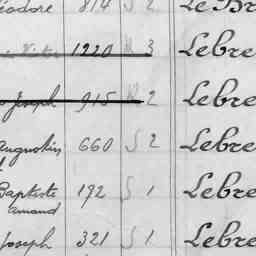 éodore 814 S 2 Le Br
Victor 1220 N 3 Lebre
Joseph 915 N 2 Lebre
augustin 660 S 2 Lebre
Baptiste 192 S 1 Lebre
amand
Joseph 321 S 1 Lebre